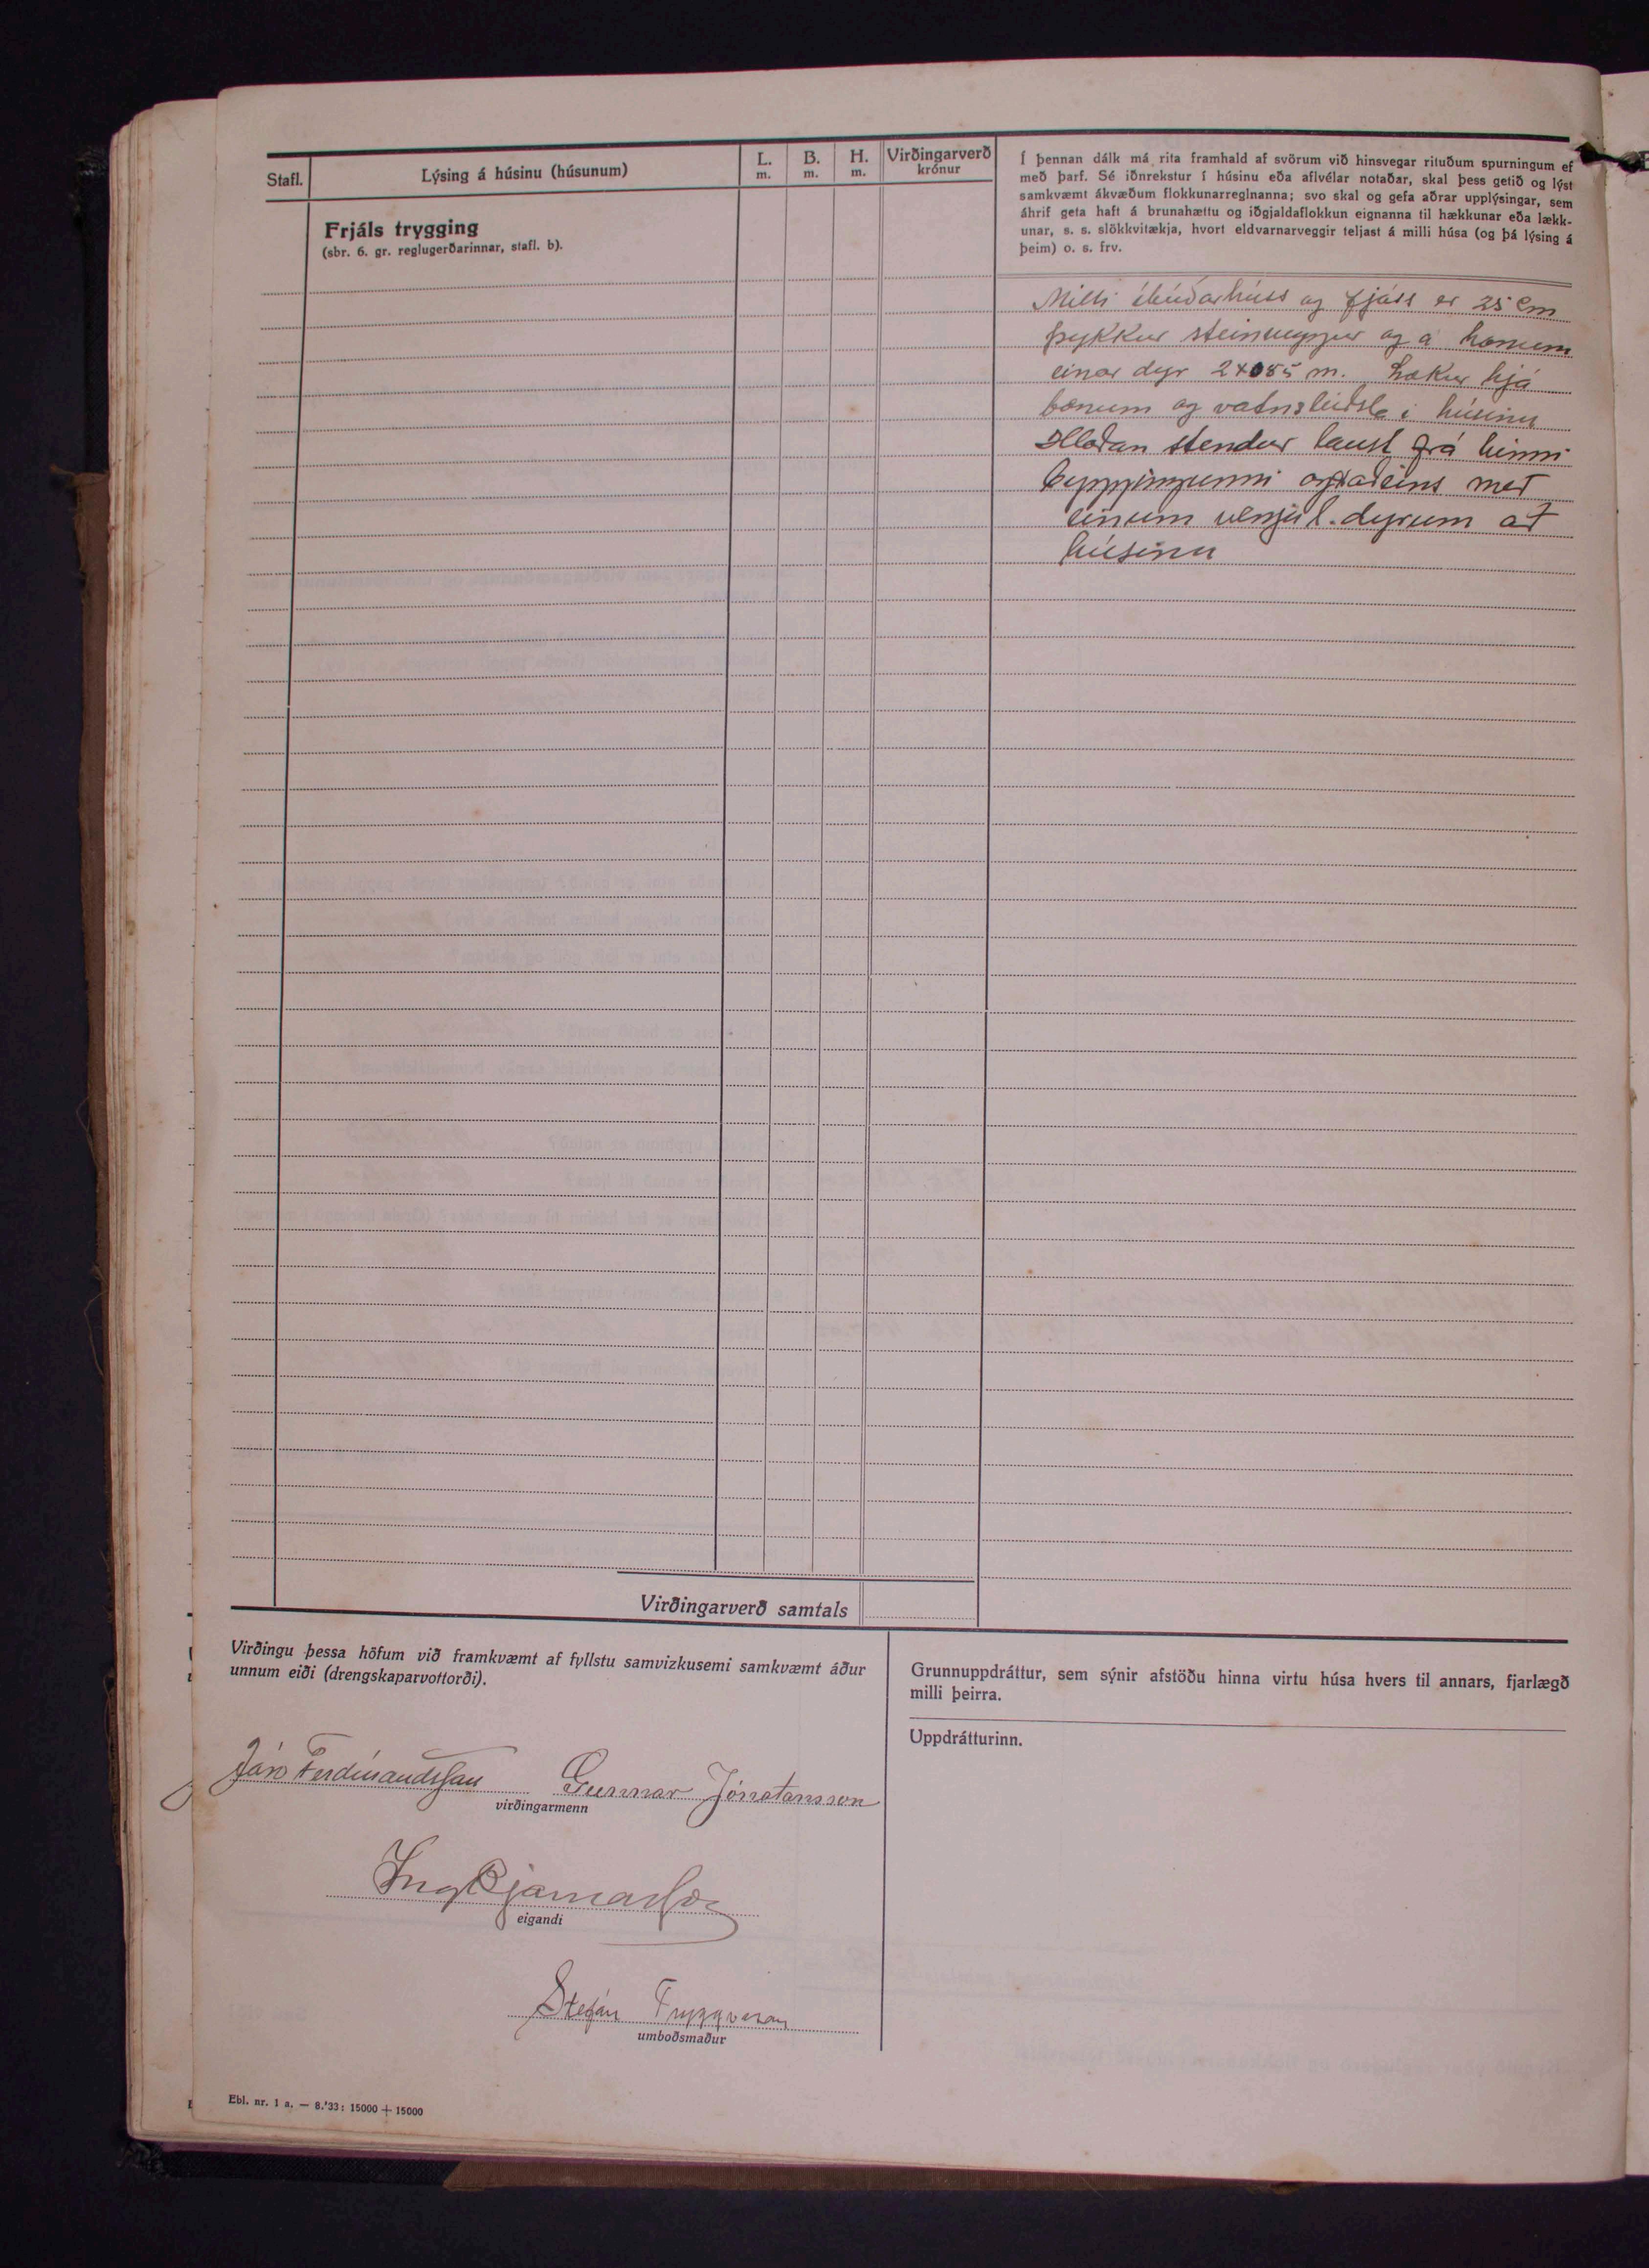 Stafl.
Lýsing á húsinu (húsunum)
L.
m.
B.
m.
H.
m.
Virðingarverð
krónur
Frjáls trygging
(sbr. 6. gr. reglugerðarinnar, stafl. b).
Í þennan dálk má rita framhald af svörum við hinsvegar rituðum spurningum ef
með þarf. Sé iðnrekstur í húsinu eða aflvélar notaðar, skal þess getið og lýst
samkvæmt ákvæðum flokkunarreglnanna; svo skal og gefa aðrar upplýsingar, sem
áhrif geta haft á brunahættu og iðgjaldaflokkun eignanna til hækkunar eða lækk-
unar, s. s. slökkvitækja, hvort eldvarnarveggir teljast á milli húsa (og þá lýsing á
þeim) o. s. frv.
Milli íbúðarhúss og fjóss er 25 cm
þykkur steinveggur og á honum
einar dyr 2x085 m. Lækur hjá
bænum og vatnsleiðsla í húsinu
Hlaðan stendur laust frá hinni
byggingunni og aðeins með
einum venjul. dyrum að
húsinu
Virðingarverð samtals
Virðingu þessa höfum við framkvæmt af fyllstu samvizkusemi samkvæmt áður
unnum eiði (drengskaparvottorði).
Jón Ferdínandsson Gunnar Jónatansson
virðingarmenn
Ing Bjarnason
eigandi
Stefán Tryggvason
umboðsmaður
Grunnuppdráttur, sem sýnir afstöðu hinna virtu húsa hvers til annars, fjarlægð
milli þeirra.
Uppdrátturinn.
Ebl. nr. 1 a. — 8.'33: 15000 + 15000